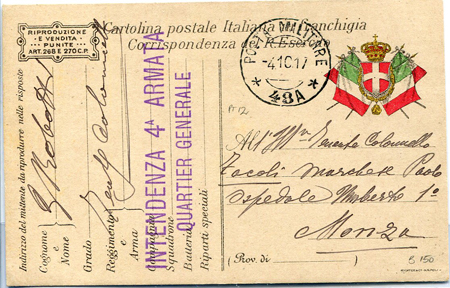 RIPRODUZIONE
E VENDITA
PUNITE
ART. 268 E 270 C.P.
Cartolina postale Italiana in franchigia
Corrispondenza R. Esercito
POSTA MILITARE
-4.10.17
* 48A *
INTENDENZA 4ª ARMATA
QUARTIER GENERALE
Indirizzo del mittente da riprodurre nelle risposte
Cognome e Nome
Grado
Reggimento e Arma
Compagnia
Squadrone
Batteria
Riparti speciali
All'Ill. Tenente Colonnello
Tacoli Marchese Paolo
Ospedale Umberto 1º
Monza
(Prov. di )
B 150